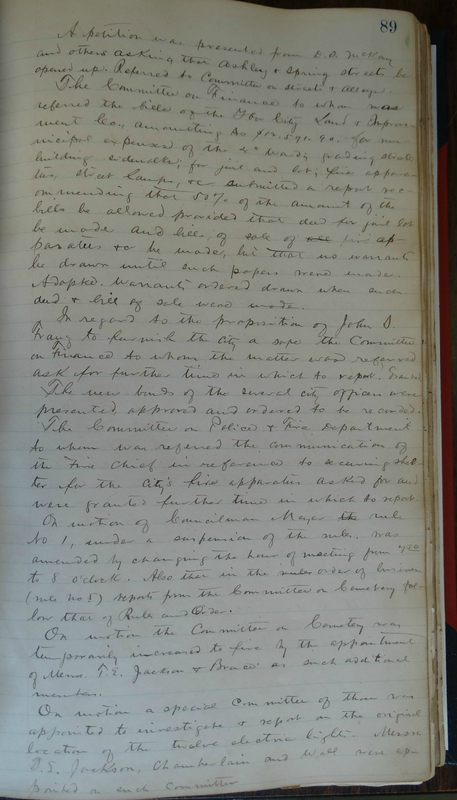 89
A petition was presented from D.D. McKay
and others asking that Ashley & Spring streets be
opened up. Referred to Committee on streets & alleys.
The Committee on Finance to whom was
referred the bills of the Ybor City Land & Improve-
ment Co., amounting to for mu-
nicipal expenses of the 4" Ward, grading streets
building sidewalks, for jail and lot, fire appara-
tus, street lamps, &c submitted a report rec-
ommending that 50% of the amount of the
bills be allowed provided that deed for jail lot
be made and bills, of sale of fire ap-
paratus &c be made, but that no warrants
be drawn until such papers were made.
Adopted. Warrants ordered drawn when such
deed & bill of sale were made.
In regard to the proposition of John B.
to furnish the city a safe the Committee
on Finance to whom the matter was referred
ask for further time in which to report. Granted
The new bonds of the several city officers were
presented approved and ordered to be recorded.
The Committee on Police & Fire Department
to whom was referred the communication of
the Fire Chief in reference to securing shel-
ter for the city's fire apparatus asked for and
were granted further time in which to report.
On motion of Councilman Mayer the rule
No 1, under a suspension of the rules, was
amended by changing the hour of meeting from 7 30
to 8 o'clock. Also that in the rules order of business
(rule no 5) reports from the Committee on Cemetery fol-
low that of Rules and Order.
On motion the Committee on Cemetery was
temporarily increased to five by the appointment
of Messrs. T.E. Jackson & as such additional
members.
On motion a special Committee of three was
appointed to investigate & report on the original
location of the twelve electric lights. Messrs
T.E. Jackson, Chamberlain and Wall were ap-
pointed on such Committee